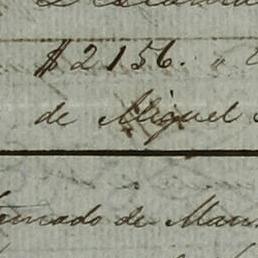 $2156. "
de Miguel
tomado de Man